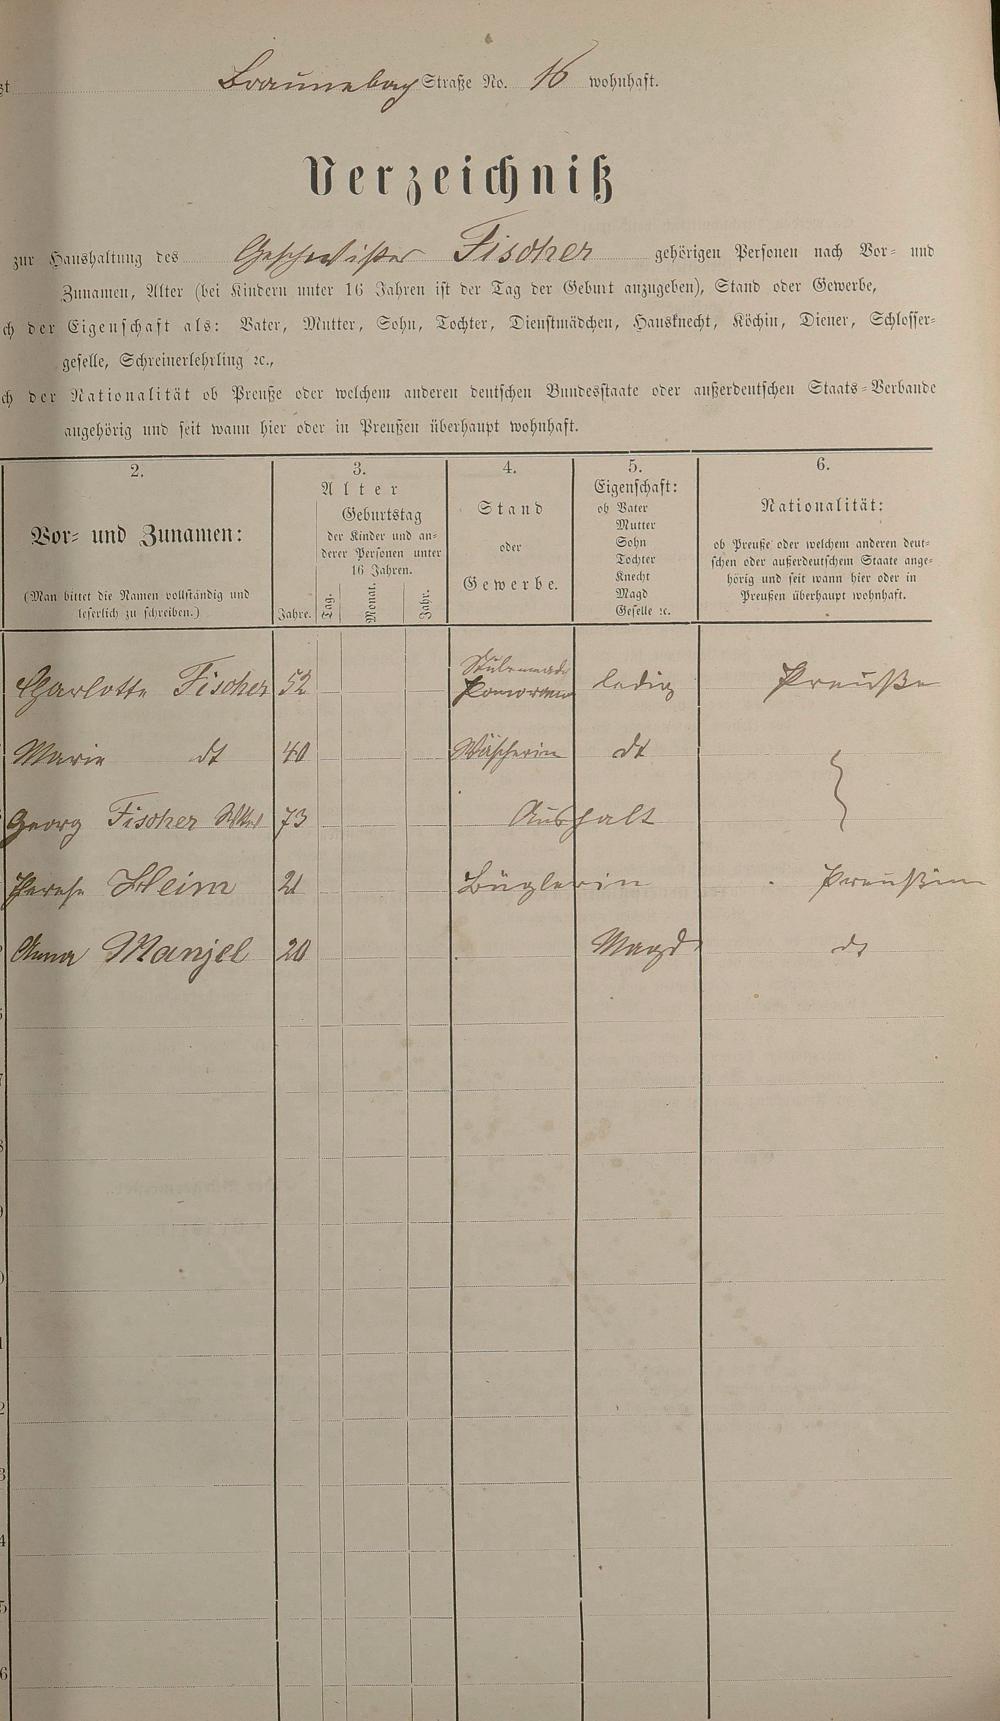 Straße No. 16 wohnhaft.
Verzeichniß
zur Haushaltung des Geschwister Fischer gehörigen Personen nach Vor- und
Zunamen, Alter (bei Kindern unter 16 Jahren ist der Tag der Geburt anzugeben), Stand oder Gewerbe,
ch der Eigenschaft als: Vater, Mutter, Sohn, Tochter, Dienstmädchen, Hausknecht, Köchin, Diener, Schlosser-
geselle, Schreinerlehrling ꝛc.,
ch der Nationalität ob Preuße oder welchem anderen deutschen Bundesstaate oder außerdeutschen Staats-Verbande
angehörig und seit wann hier oder in Preußen überhaupt wohnhaft.
2. 3. 4. 5. 6.
Vor- und Zunamen:
(Man bittet die Namen vollständig und
leserlich zu schreiben.)
Alter
Geburtstag
der Kinder und an-
derer Personen unter
16 Jahren.
Jahre. Tag. Monat. Jahr.
Stand
oder
Gewerbe.
Eigenschaft:
ob Vater
Mutter
Sohn
Tochter
Knecht
Magd
Geselle ꝛc.
Nationalität:
ob Preuße oder welchem anderen deut-
schen oder außerdeutschem Staate ange-
hörig und seit wann hier oder in
Preußen überhaupt wohnhaft.
Charlotte Fischer 52 ledig Preuße
Marie dt 40 Wäscherin dt
Georg Fischer 73 Aushalt
Heim 21 Büglerin Preußin
Anna Manjel 20 Magd dt